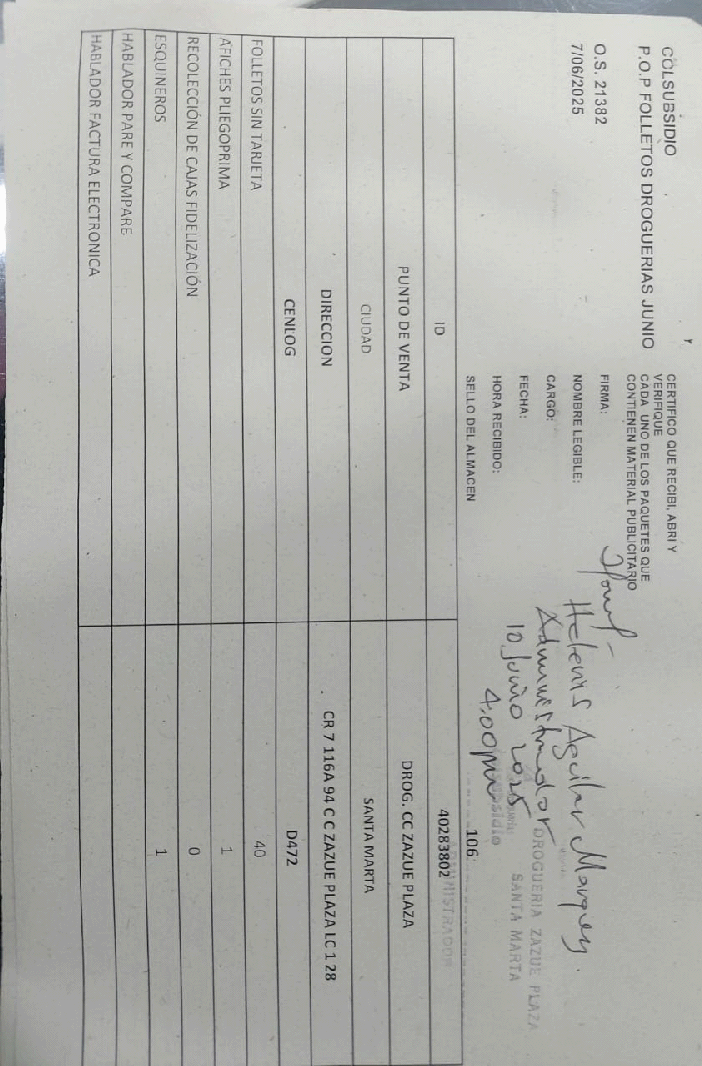 COLSUBSIDIO
P.O.P FOLLETOS DROGUERIAS JUNIO
O.S. 21382
7/06/2025
CERTIFICO QUE RECIBI, ABRI Y
VERIFIQUE
CADA UNO DE LOS PAQUETES QUE
CONTIENEN MATERIAL PUBLICITARIO
FIRMA:
NOMBRE LEGIBLE: Helenis Aguilar Marquez.
CARGO: Administrador
FECHA: 10 Junio 2025
HORA RECIBIDO: 4:00pm
SELLO DEL ALMACEN
DROGUERIA ZAZUE PLAZA
SANTA MARTA
ADMINISTRADOR
106
ID 40283802
PUNTO DE VENTA DROG. CC ZAZUE PLAZA
CIUDAD SANTA MARTA
DIRECCION CR 7 116A 94 C C ZAZUE PLAZA LC 1 28
CENLOG D472
FOLLETOS SIN TARJETA 40
AFICHES PLIEGOPRIMA 1
RECOLECCIÓN DE CAJAS FIDELIZACIÓN 0
ESQUINEROS 1
HABLADOR PARE Y COMPARE
HABLADOR FACTURA ELECTRONICA